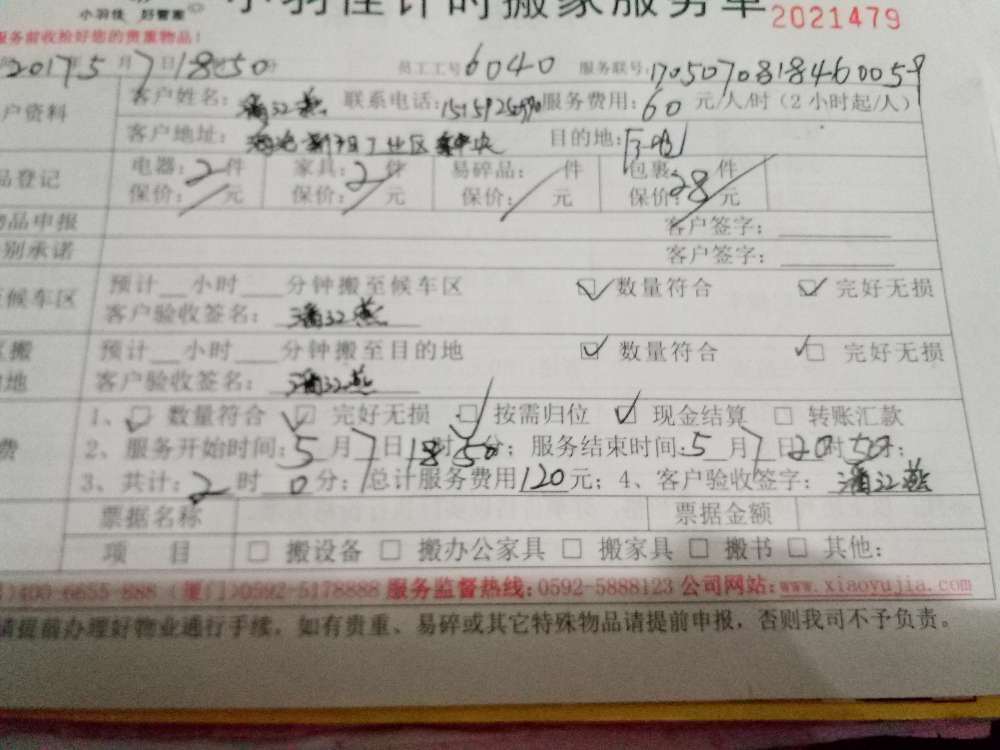 小羽佳 好管家
小羽佳计时搬家服务单 2021479
服务前收拾好您的贵重物品!
2017 5月7日18:50分 员工工号6040 服务联号:1705070818460059
户资料 客户姓名: 联系电话: 服务费用:60元/人/时(2小时起/人)
客户地址: 工业区 目的地:
品登记 电器:2件 家具:2件 易碎品:/件 包裹:28件
保价:/元 保价:/元 保价:/元 保价:/元
物品申报 客户签字:
别承诺 客户签字:
候车区 预计__小时__分钟搬至候车区 ☑数量符合 ☑完好无损
客户验收签名:潘江燕
搬 预计__小时__分钟搬至目的地 ☑数量符合 ☑完好无损
地 客户验收签名:潘江燕
1、☑数量符合 ☑完好无损 ☑按需归位 ☑现金结算 □转账汇款
费 2、服务开始时间:5月7日18时50分; 服务结束时间:5月7日20时50分;
3、共计:2时0分; 总计服务费用120元; 4、客户验收签字:潘江燕
票据名称 票据金额
项 目 □搬设备 □搬办公家具 □搬家具 □搬书 □其他:
400-6655-888 (厦门)0592-5178888 服务监督热线:0592-5888123 公司网站:www.xiaoyujia.com
请提前办理好物业通行手续, 如有贵重、易碎或其它特殊物品请提前申报, 否则我司不予负责。